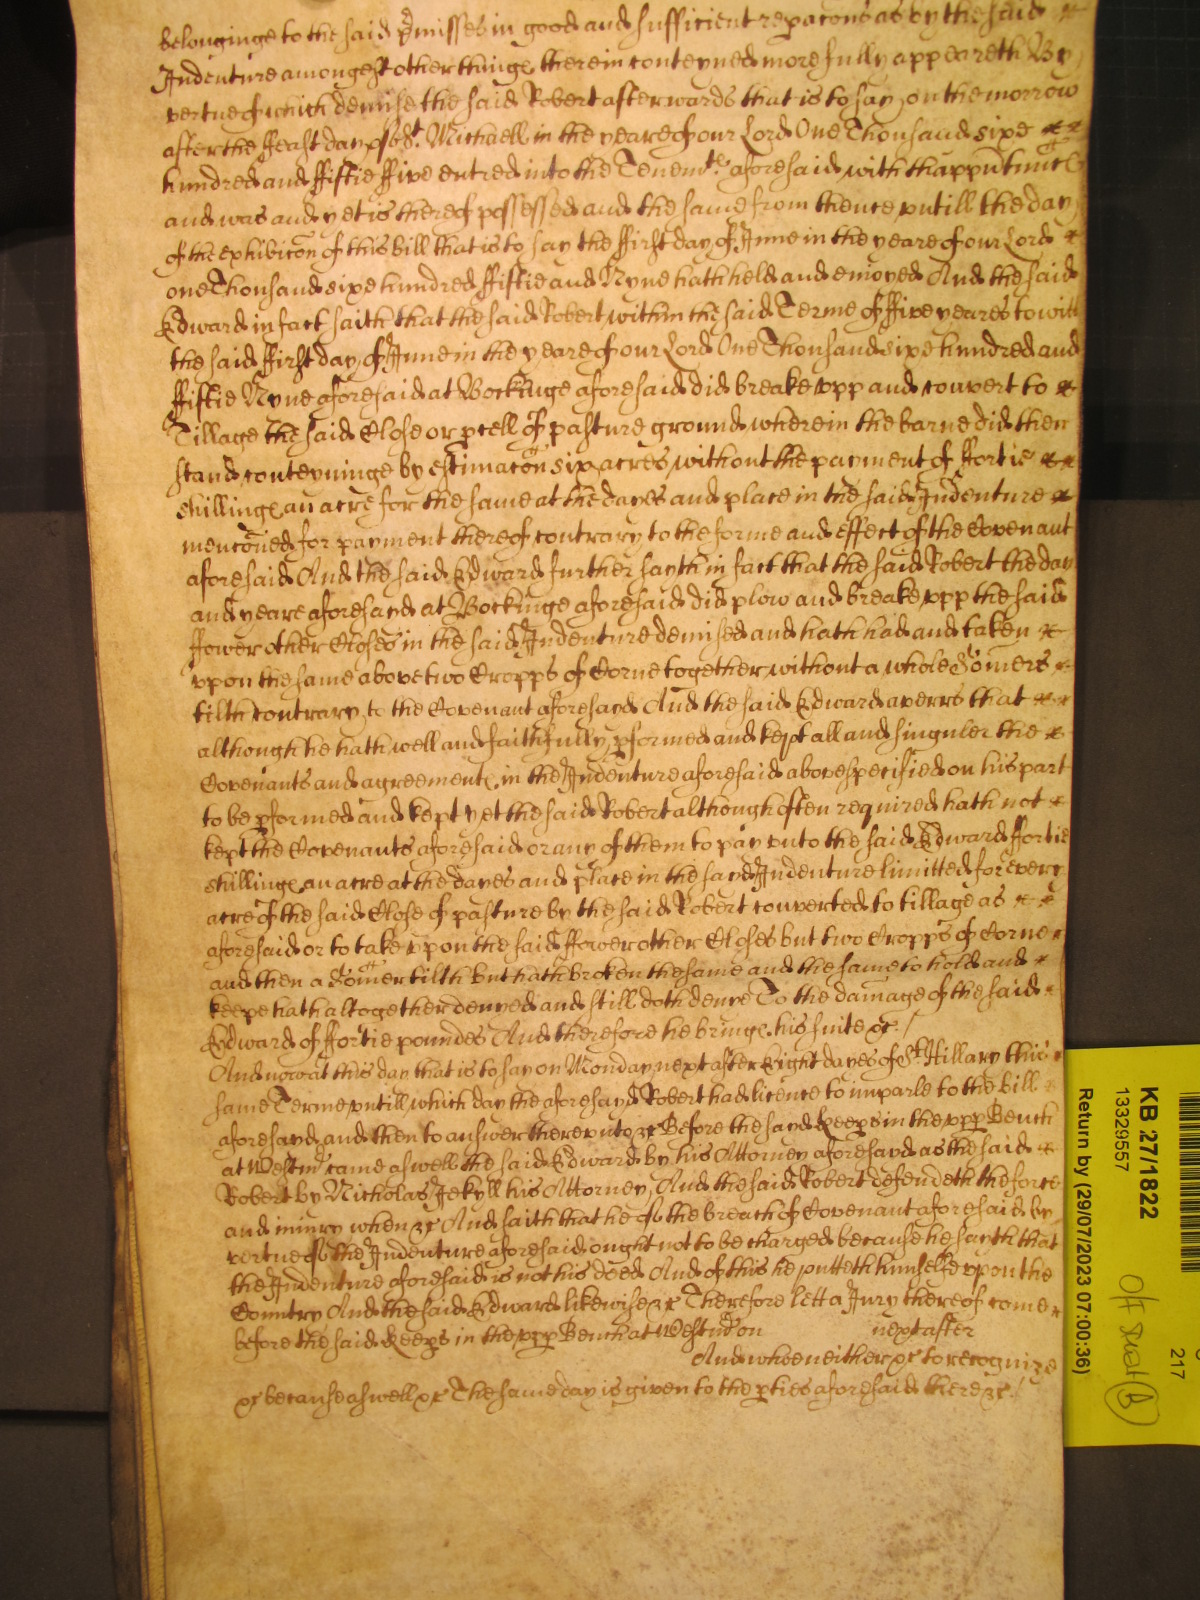 belonginge to the said p̄misses in good and sufficient repacons as by the said
Indenture amongest other thinge therein conteyned more fully appeareth By
vertue of which demise the said Robert afterwards that is to say on the morrow
after the ffeast day of St. Michaell in the yeare of our Lord One Thousand sixe
hundred and ffiftie ffive entred into the Tenemte aforesaid with thappurtnnce
and was and yet is thereof possessed and the same from thence untill the day
of the exhibicon of this bill that is to say the ffirst day of June in the yeare of our Lord
one Thousand sixe hundred ffiftie and Nyne hath held and enioyed And the said
Edward in fact saith that the said Robert within the said Terme of ffive yeares to witt
the said ffirst day of June in the yeare of our Lord One Thousand sixe hundred and
ffiftie Nyne aforesaid at Bockinge aforesaid did breake upp and convert to
Tillage the said Close or pcell of pasture ground wherein the barne did then
stand conteyninge by estimacon six acres without the payment of ffortie
shillinge an acre for the same at the dayes and place in the said Indenture
menconed for payment thereof contrary to the forme and effect of the Covenant
aforesaid And the said Edward further sayth in fact that the said Robert the day
and yeare aforesayd at Bockinge aforesaid did plow and breake upp the said
ffower other Closes in the said Indenture demised and hath had and taken
upon the same above two Cropps of Corne together without a whole Somers
tilth contrary to the Covenant aforesayd And the said Edward averrs that
although he hath well and faithfully pformed and kept all and singuler the
Covenants and agreemente in the Indenture aforesaid above specified on his part
to be pformed and kept yet the said Robert although often required hath not
kept the Covenants aforesaid or any of them to pay unto the said Edward ffortie
shillinge an acre at the dayes and place in the sayd Indenture limitted for every
acre of the said Close of pasture by the said Robert converted to tillage as
aforesaid or to take upon the said ffower other Closes but two Cropps of Corne
and then a Somer tilth but hath broken the same and the same to hold and
keepe hath altogether denyed and still doth denye To the damage of the said
Edward of ffortie poundes And therefore he bringe his suite &c.
And now at this day that is to say on Monday next after Eight dayes of St. Hillary this
same Terme untill which day the aforesayd Robert had licence to imparle to the bill
aforesayd and then to answer thereunto &c Before the sayd keeps in the upp Bench
at Westmr. came aswell the said Edward by his Attorney aforesayd as the said
Robert by Nicholas Jekyll his Attorney And the said Robert defendeth the force
and iniury when &c And saith that he of the breach of Covenant aforesaid by
vertue of the Indenture aforesaid ought not to be charged because he sayth that
the Indenture aforesaid is not his deed And of this he putteth himselfe upon the
Country And the said Edward likewise &c Therefore lett a Jury thereof come
before the said keeps in the upp Bench at Westmr on next after
And who neither &c to recognize
&c because aswell &c The same day is given to the pties aforesaid there &c.
KB 27/1822
13329557
Return by (29/07/2023 07:00:36)
217